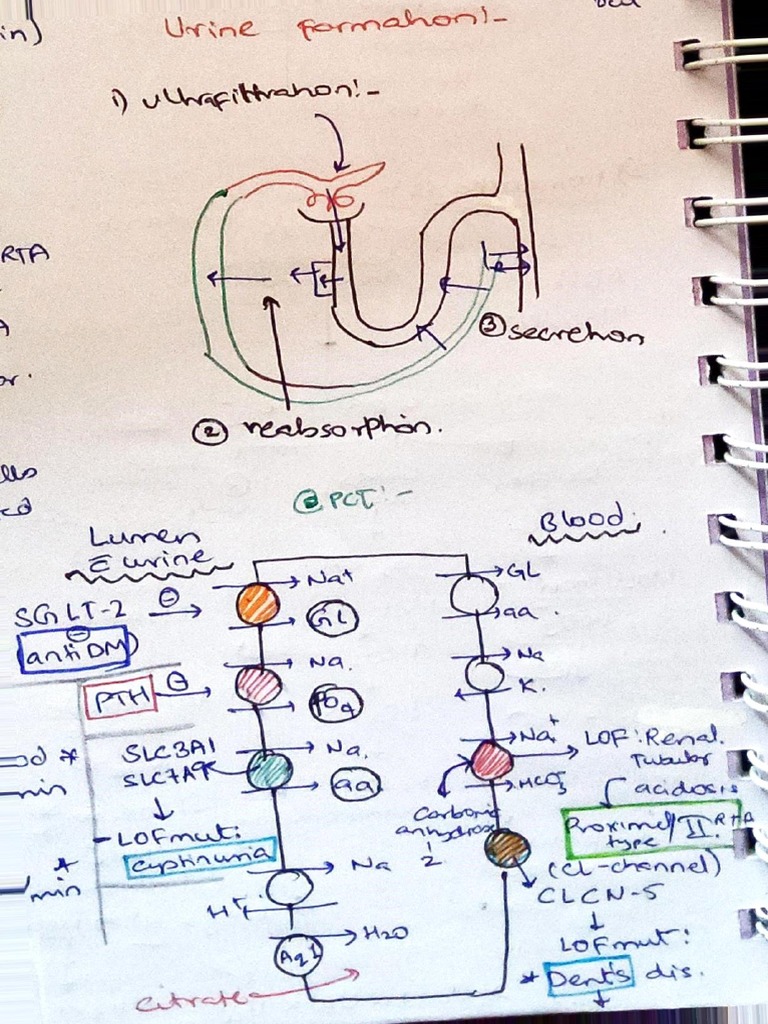 in)
Urine formation!-
1) ultrafiltration!-
RTA
A
or.
③ secretion
② reabsorption.
lls
ed
② PCT!-
Lumen
c̄ urine
Blood.
SGLT-2 ⊖
⊖
antiDM
Na+
GL
GL
aa.
PTH ⊖
Na.
PO4
Na
K.
SLC3A1
SLC7A9
Na.
aa
Na+
HCO3-
LOF: Renal
Tubular
acidosis
Proximal/II RTA
type
Carbonic
anhydrase
2
LOFmut:
cystinuria
od *
min
*
/min
Na
H+
(Cl-channel)
CLCN-5
LOFmut:
* Dent's dis.
Aq1
H2O
citrate